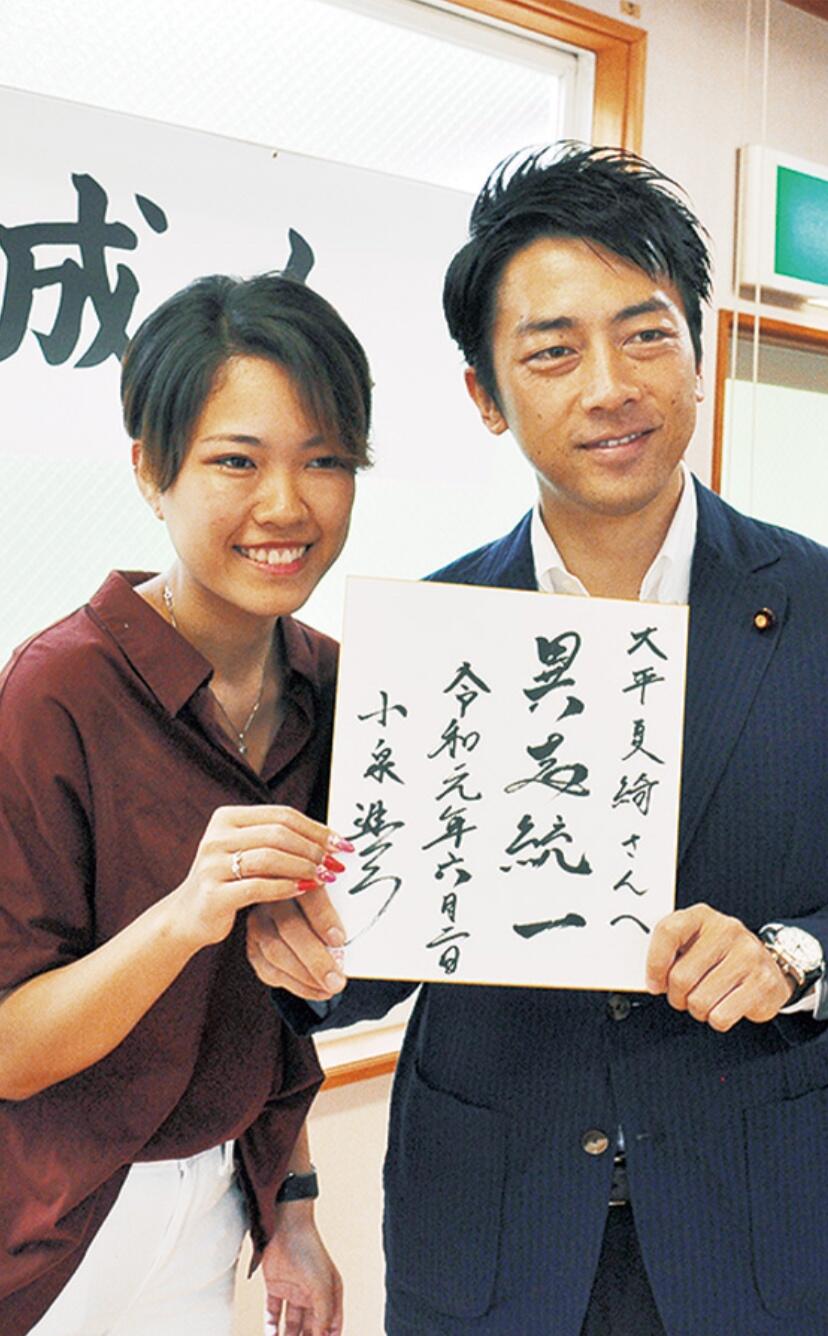 成
大平夏綺さんへ
異志統一
令和元年六月二日
小泉進次郎